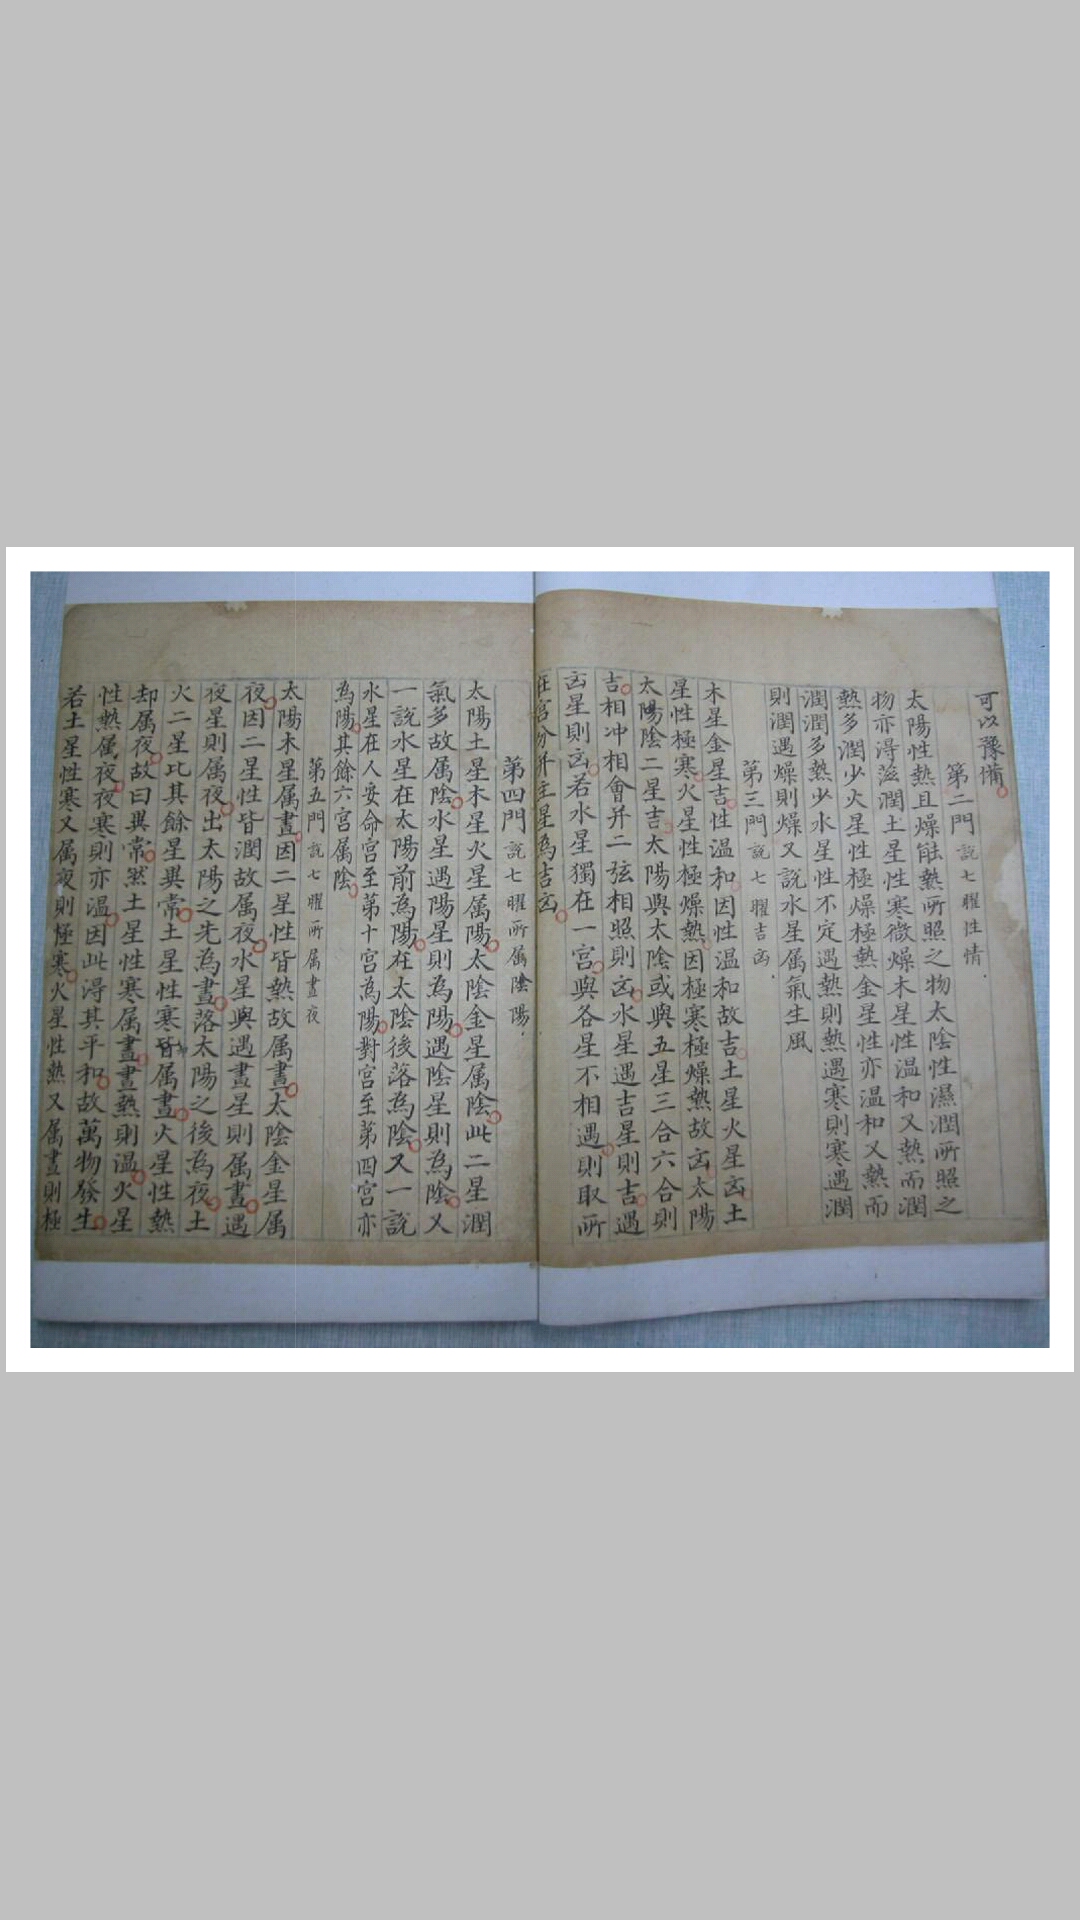 可以豫備
第二門 說七曜性情
太陽性熱且燥能熱所照之物太陰性濕潤所照之
物亦淂滋潤土星性寒微燥木星性温和又熱而潤
熱多潤少火星性極燥極熱金星性亦温和又熱而
潤潤多熱少水星性不定遇熱則熱遇寒則寒遇潤
則潤遇燥則燥又說水星属氣生風
第三門 說七曜吉凶
木星金星吉性温和因性温和故吉土星火星凶土
星性極寒火星性極燥熱因極寒極燥熱故凶太陽
太陽陰二星吉太陽與太陰或與五星三合六合則
吉相冲相會并二弦相照則凶水星遇吉星則吉遇
凶星則凶若水星獨在一宫與各星不相遇則取所
在宫分并主星為吉凶
第四門 說七曜所属陰陽
太陽土星木星火星属陽太陰金星属陰此二星潤
氣多故属陰水星遇陽星則為陽遇陰星則為陰又
一說水星在太陽前為陽在太陰後落為陰又一說
水星在人安命宫至第十宫為陽對宫至第四宫亦
為陽其餘六宫属陰
第五門 說七曜所属晝夜
太陽木星属晝因二星性皆熱故属晝太陰金星属
夜因二星性皆潤故属夜水星與遇晝星則属晝遇
夜星則属夜出太陽之先為晝落太陽之後為夜土
火二星比其餘星異常土星性寒皆属晝火星性熱
却属夜故曰異常然土星性寒属晝晝熱則温火星
性熱属夜夜寒則亦温因此淂其平和故萬物發生
若土星性寒又属夜則極寒火星性熱又属晝則極